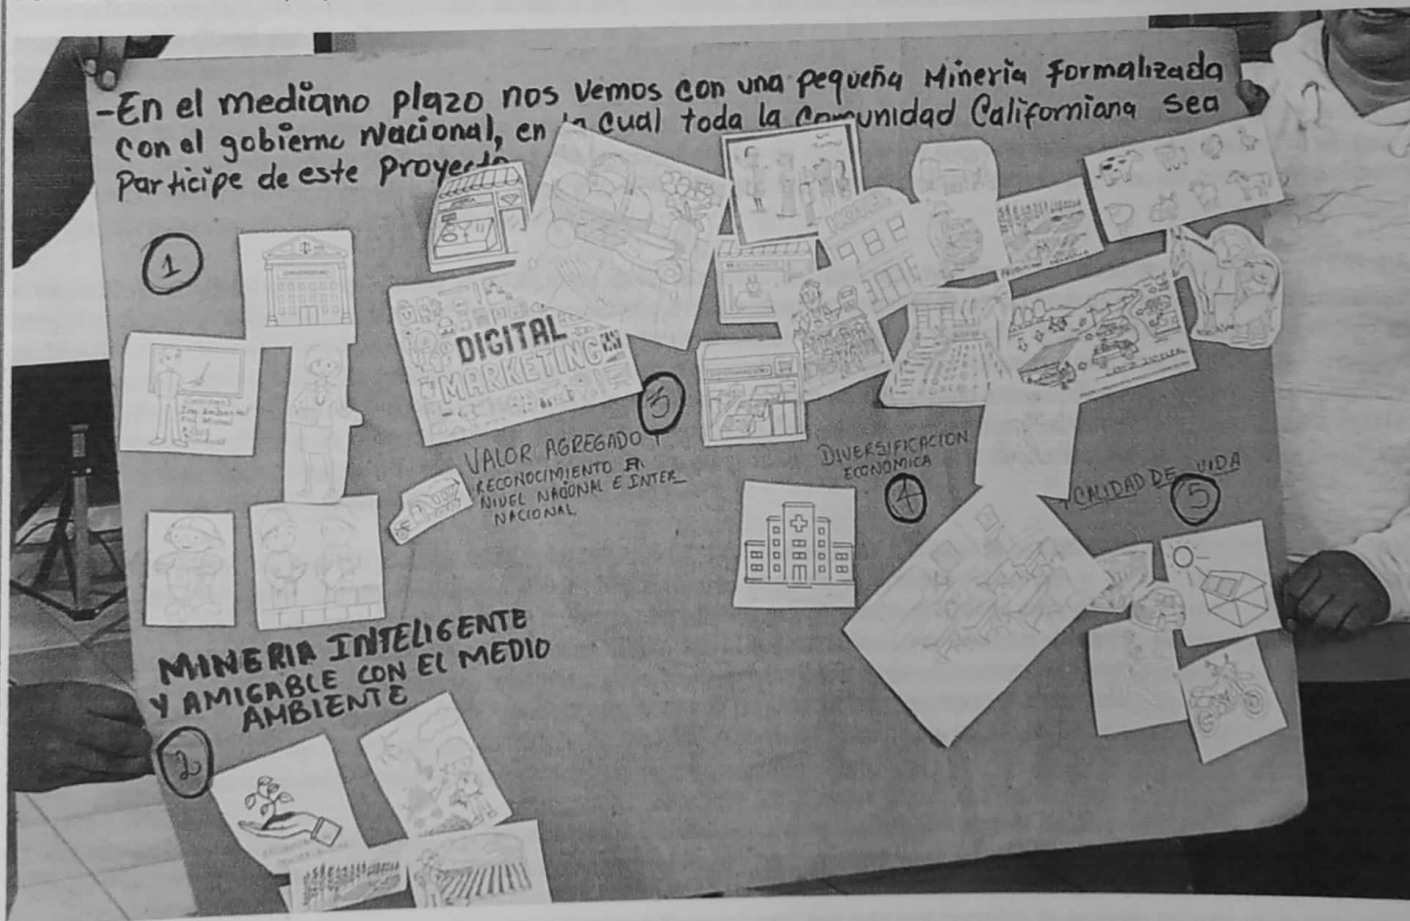 -En el mediano plazo nos vemos con una pequeña Mineria formalizada
con el gobierno Nacional, en la cual toda la Comunidad Californiana sea
Participe de este Proyecto
1
DIGITAL
MARKETING
3
HOTEL
VALOR AGREGADO Y
RECONOCIMIENTO A
NIVEL NACIONAL E INTER
NACIONAL
DIVERSIFICACION
ECONOMICA
4
Y CALIDAD DE VIDA
5
MINERIA INTELIGENTE
Y AMIGABLE CON EL MEDIO
AMBIENTE
2